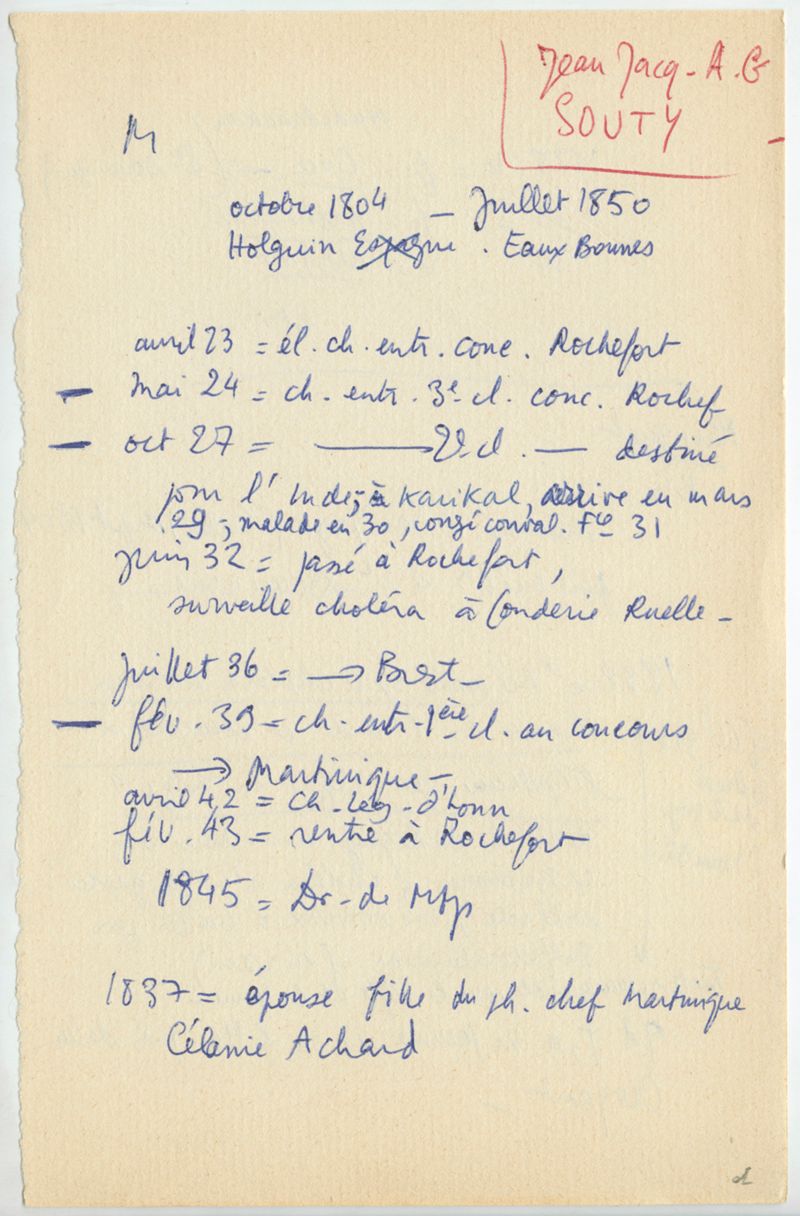 Jean Jacq - A. G
SOUTY
M
octobre 1804 - Juillet 1850
Holguin Espagne . Eaux Bonnes
avril 23 = él. ch. entr. conc. Rochefort
- Mai 24 = ch. entr. 3e cl. conc. Rochef
- oct 27 = → 2e cl. — destiné
pour l'Inde, à Karikal, arrive en mars
29 -, malade en 30, congé conval. Fce 31
juin 32 = passé à Rochefort,
surveille choléra à fonderie Ruelle -
Juillet 36 = → Brest -
- fév. 39 = ch. entr. 1ère cl. au concours
→ Martinique -
avril 42 = ch. Lég - d'honn
fév. 43 = rentre à Rochefort
1845 = Dr - de Mtp
1837 = épouse fille du ph. chef Martinique
Célanie Achard